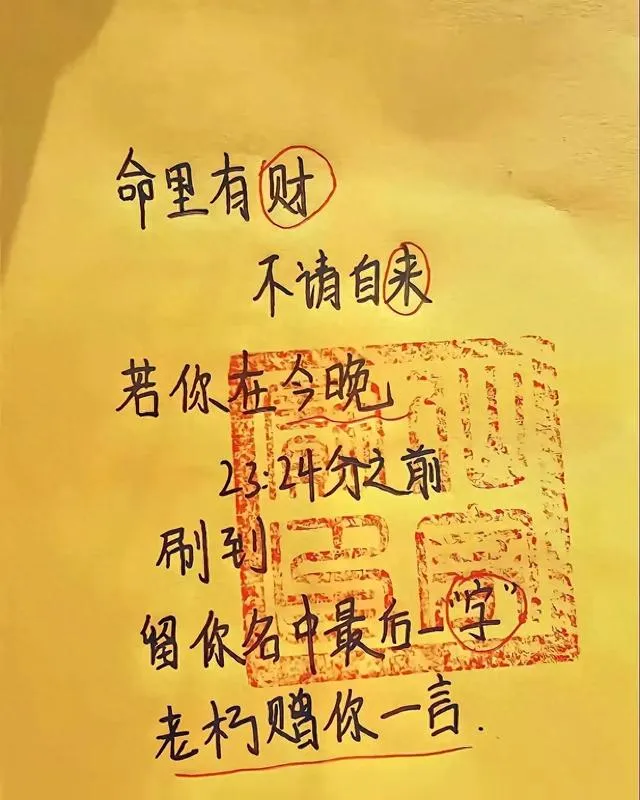 命里有财
不请自来
若你在今晚
23:24分之前
刷到
留你名中最后一"字"
老朽赠你一言.